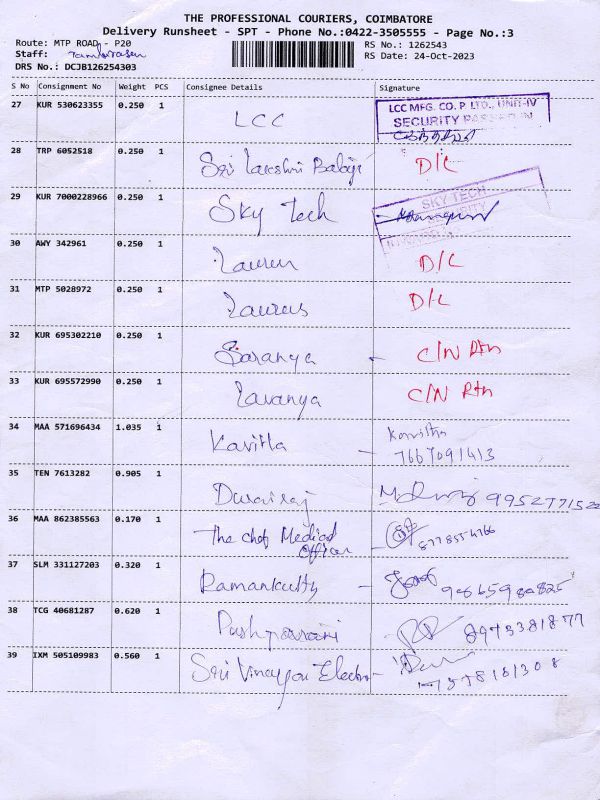 THE PROFESSIONAL COURIERS, COIMBATORE
Delivery Runsheet - SPT - Phone No.:0422-3505555 - Page No.:3
Route: MTP ROAD - P20
RS No.: 1262543
Staff:
RS Date: 24-Oct-2023
DRS No.: DCJB126254303
S No Consignment No Weight PCS Consignee Details Signature
27 KUR 530623355 0.250 1 LCC
LCC MFG. CO. P. LTD., UNIT-IV
SECURITY PASSED IN
28 TRP 6052518 0.250 1 Sri Lakshmi Balaji D/C
29 KUR 7000228966 0.250 1 Sky Tech
SKY TECH
SECURITY
30 AWY 342961 0.250 1 D/C
31 MTP 5028972 0.250 1 Laurus D/C
32 KUR 695302210 0.250 1 Saranya - C/N Rtn
33 KUR 695572990 0.250 1 Lavanya C/N Rtn
34 MAA 571696434 1.035 1 Kavitha - Kavitha
7667091413
35 TEN 7613282 0.905 1 Durairaj 9952771522
36 MAA 862385563 0.170 1 The Chef Medical
Officer - 8778554766
37 SLM 331127203 0.320 1 Ramankutty - 9865980825
38 TCG 40681287 0.620 1 8973381877
39 IXM 505109983 0.560 1 Sri Vinayga Electro -